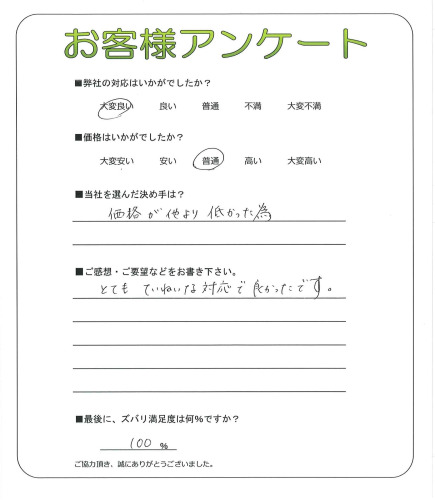 お客様アンケート
■弊社の対応はいかがでしたか？
大変良い 良い 普通 不満 大変不満
■価格はいかがでしたか？
大変安い 安い 普通 高い 大変高い
■当社を選んだ決め手は？
価格が他より低かった為
■ご感想・ご要望などをお書き下さい。
とてもていねいな対応で良かったです。
■最後に、ズバリ満足度は何%ですか？
100 %
ご協力頂き、誠にありがとうございました。